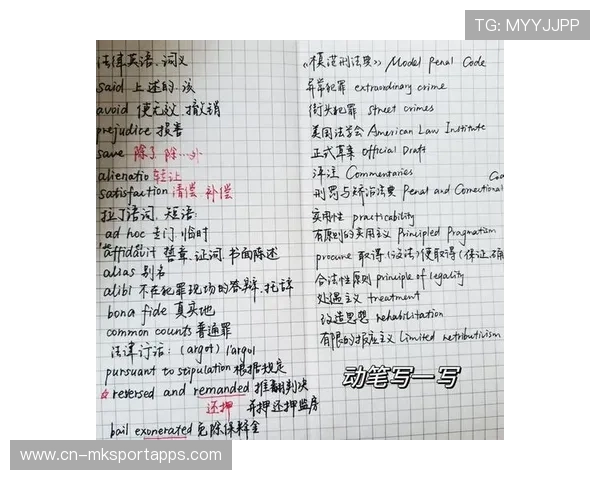 TG: MYYJJPP
法律英语、词义
said 上述的、该
avoid 使无效、撤销
prejudice 损害
save 除了 除…外
alienatio 转让
satisfaction 清偿 补偿
拉丁语词、短语：
ad hoc 专门、临时
affidavit 誓章、证词、书面陈述
alias 别名
alibi 不在犯罪现场的答辩、托辞
bona fide 真实地
common counts 普通罪
法律行话：(argot) l'argot
pursuant to stipulation 根据规定
☆ reversed and remanded 推翻判决
还押 弃押还押监房
bail exonerated 免除保释金
《模范刑法典》 Model Penal Code
异常犯罪 extraordinary crime
街头犯罪 street crimes
美国法学会 American Law Institute
正式草案 Official Draft
评注 Commentaries
刑罚与矫治法典 Penal and Correctional Co
实用性 practicability
有原则的实用主义 Principled Pragmatism
procure 取得(设法)使取得(保证、确
合法性原则 principle of legality
处遇主义 treatment
改造思想 rehabilitation
有限的报应主义 Limited retributivism
动笔写一写
www.cn-mksportapps.com